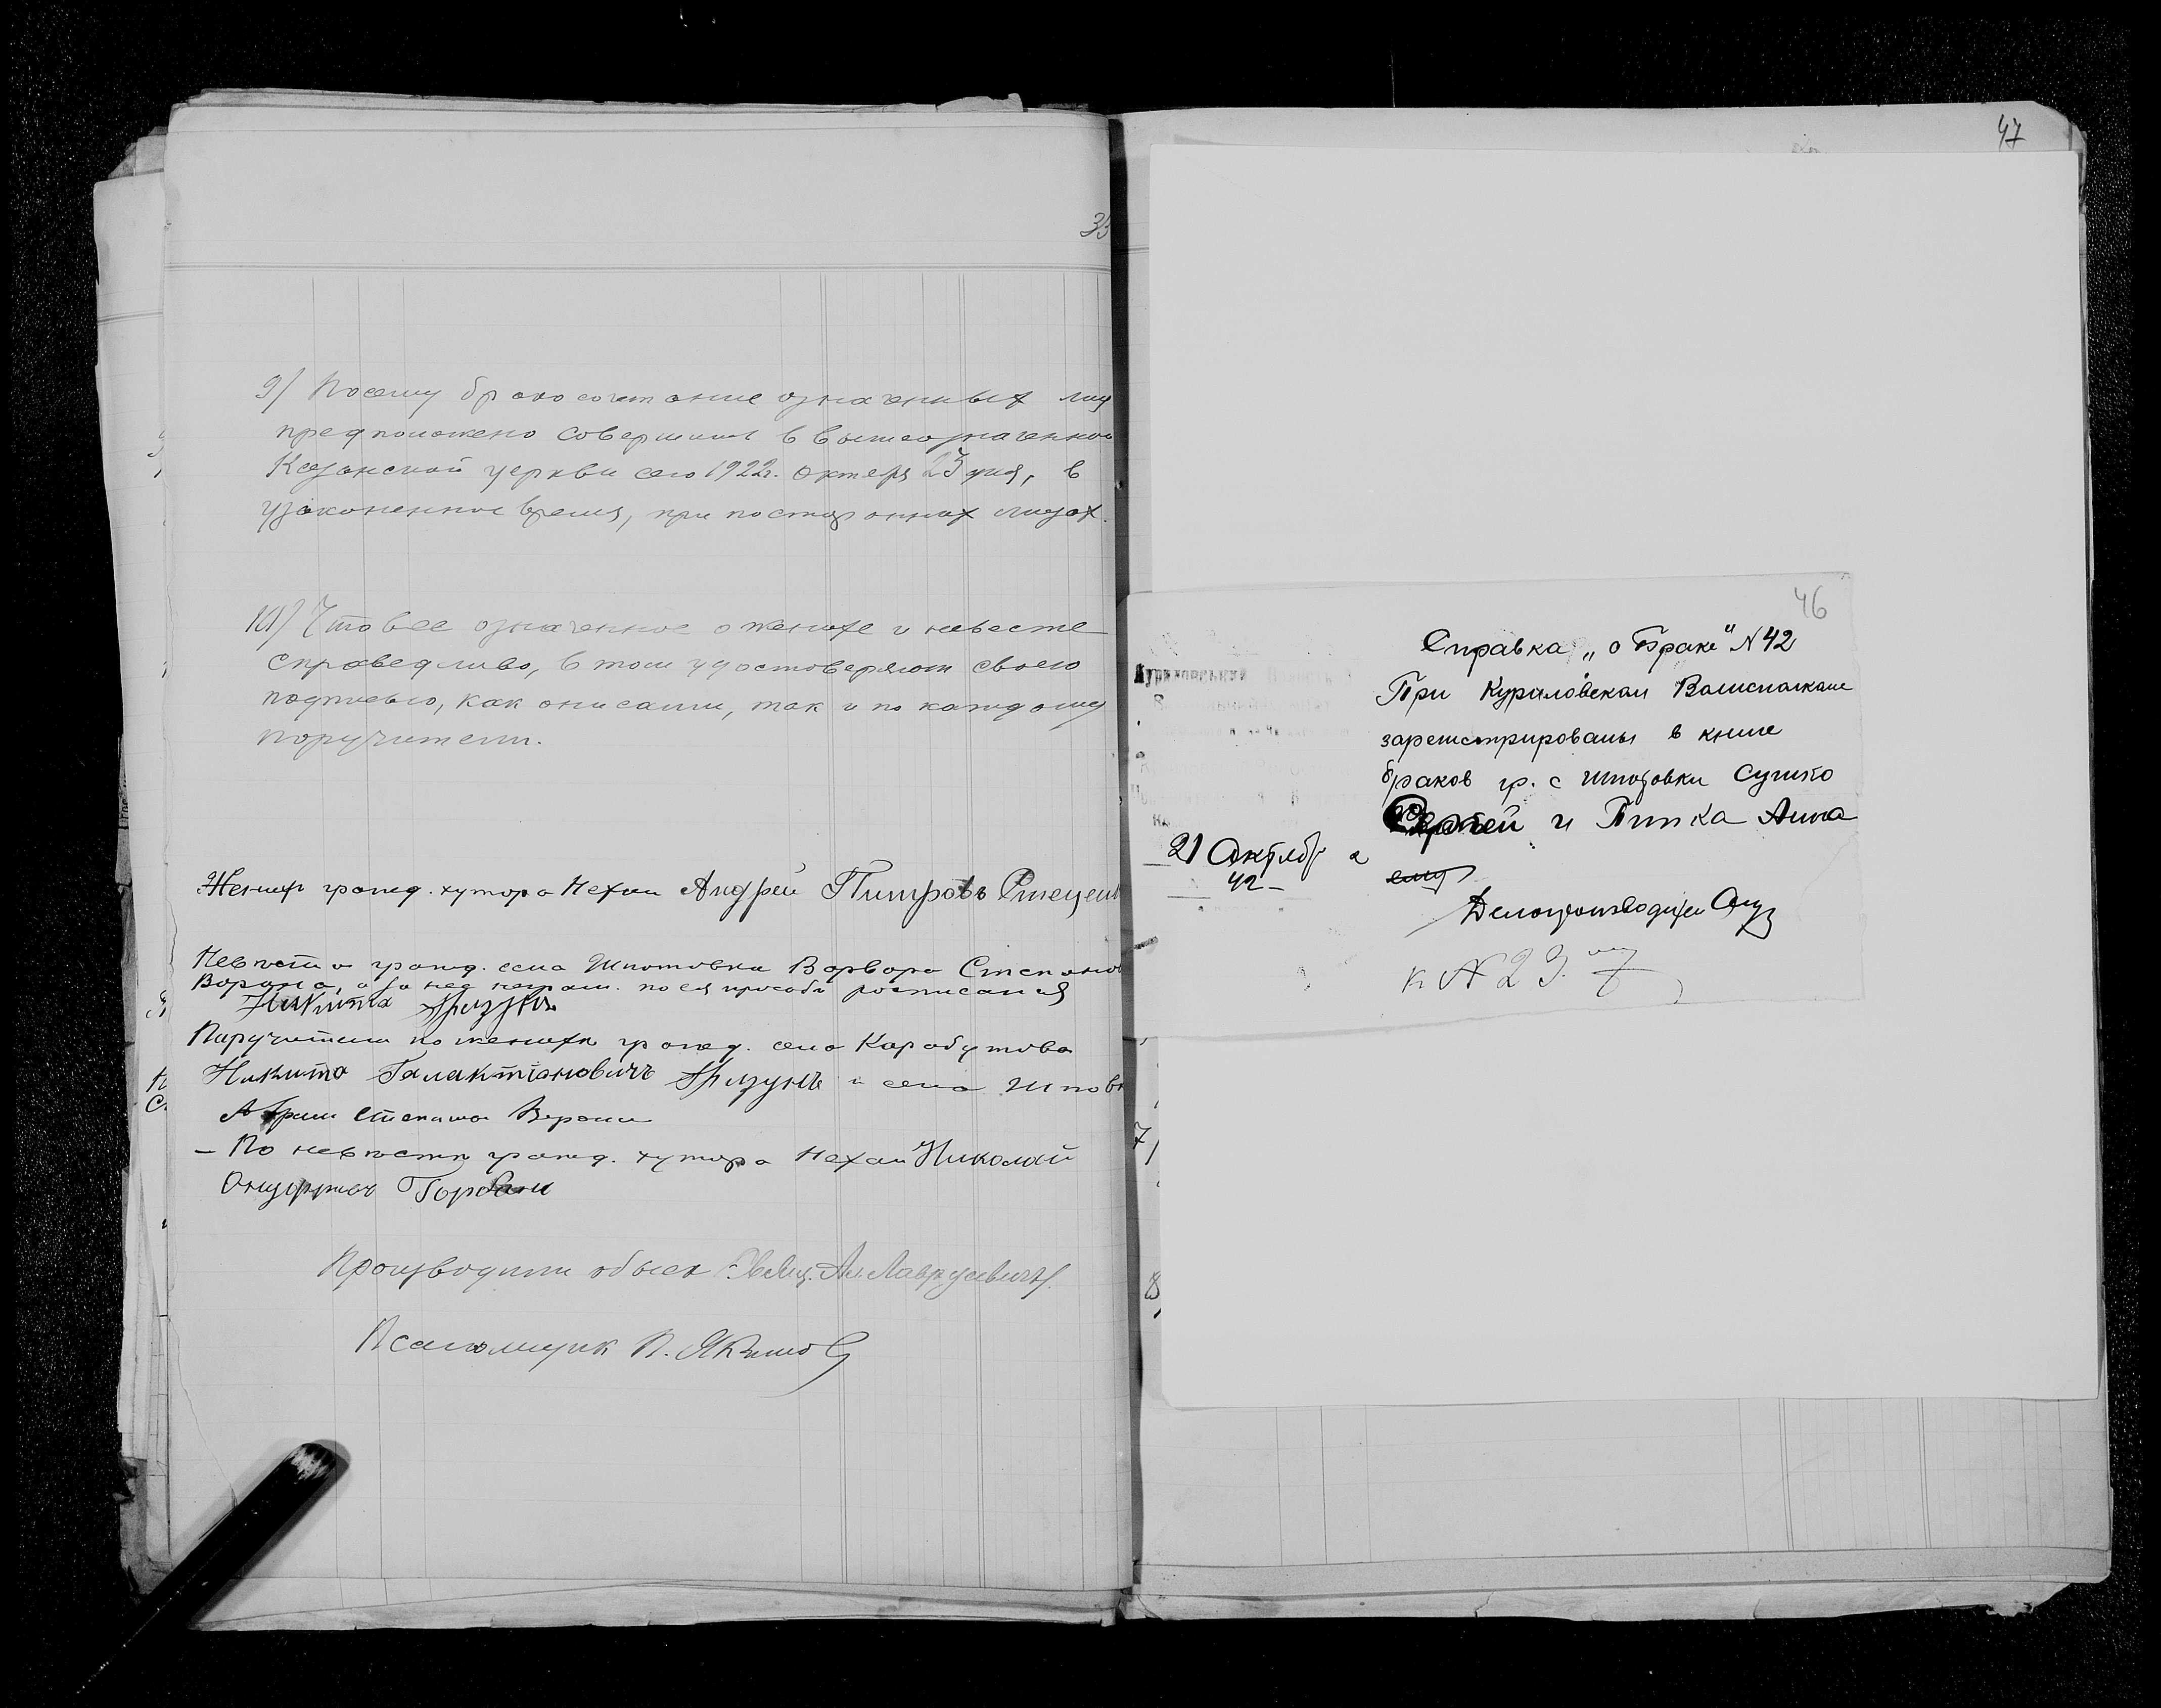 35
9) Посему бракосочетание означенных лиц
предположено совершить в вышеозначенной
Казанской церкви сего 1922г. октября 23 дня, в
узаконенное время, при посторонних лицах.
10) Что все означенное о женихе и невесте
справедливо, в том удостоверяют своею
подписью, как они сами, так и по каждому
поручители.
Жених гражд. хутора Нехаи Андрей Питровъ
Невеста гражд. села Шпотовки Варвара Степанов
Ворона, а за нея неграм. по ея прозьбе росписался
Никита
Паручители по женихе гражд. села Карабутова
Никита Галактіоновичъ и села
Степанов
– По невесте гражд. хутора Нехаи Николай
Горбань
Производили обыск
Псаломщик П. Якимов
47
46
Справка „о Браке" № 42
При Куриловском Волисполкоме
зарегистрированы в книге
браков гр. с Шпотовки Сушко
Сергей и Пипка Анна
21 Октября
42
Делопроизводитель
к № 29.
7)